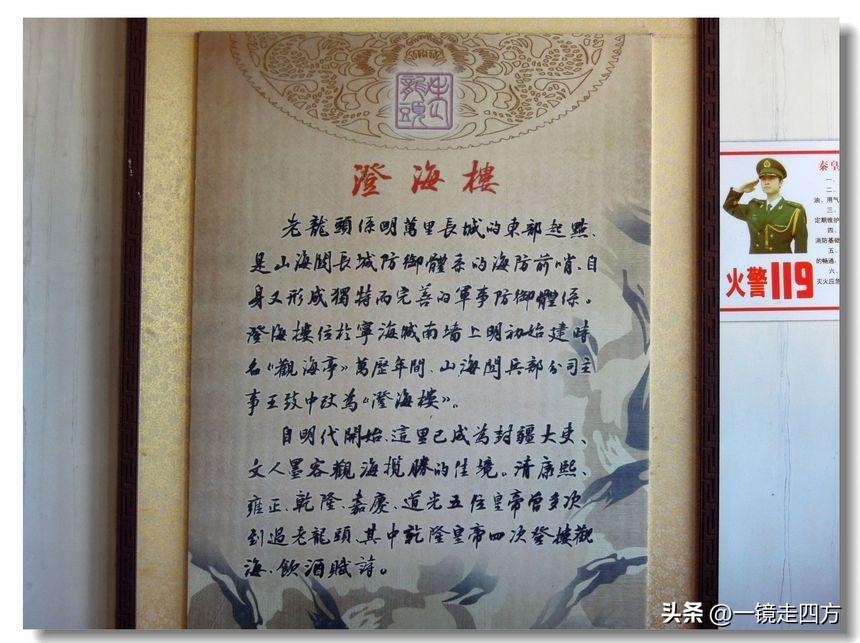 老龍頭
澄海樓
老龍頭係明萬里長城的東部起點、
是山海関長城防御體系的海防前哨、自
身又形成獨特而完善的軍事防御體係。
澄海樓位於寧海城南墻上明初始建時
名《觀海亭》萬歷年間、山海関兵部分司主
事王致中改為《澄海樓》。
自明代開始、這里已成為封疆大吏、
文人墨客觀海攬勝的佳境。清康熙、
雍正、乾隆、嘉慶、道光五位皇帝曾多次
到過老龍頭、其中乾隆皇帝四次登樓觀
海、飲酒賦詩。
秦皇
一、
二、
油、用气
三、
定期维护
四、
消防基础
五、
的畅通、
六、
灭火应急
火警119
头条 @一镜走四方